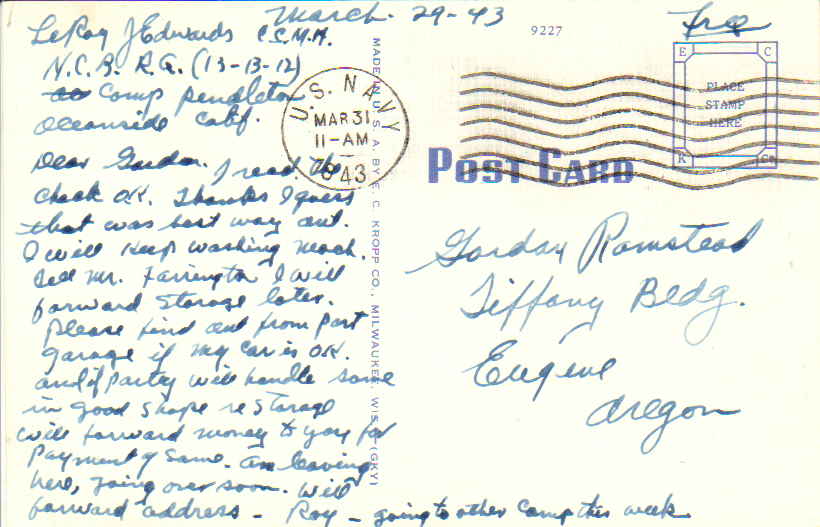 March. 29-43
LeRoy J Edwards C.S.M.M.
N.C.B. R.G. (13-13-12)
Camp Pendleton
Oceanside Calif.
Dear Gordon. I recd the
check OK. Thanks I guess
that was best way out.
I will keep washing mach.
Tell Mr. Farrington I will
forward storage later.
Please find out from Port
garage if my car is OK.
and if party will handle same
in good shape re storage
will forward money to you for
payment of same. am leaving
here, going over soon. Will
forward address - Roy - going to other camp this week
9227
Free
PLACE
STAMP
HERE
E C
K Co
U.S. NAVY
MAR 31
11-AM
1943
POST CARD
MADE IN U.S.A. BY E. C. KROPP CO., MILWAUKEE, WIS. (GKY)
Gordon Ramstead
Tiffany Bldg.
Eugene
Oregon